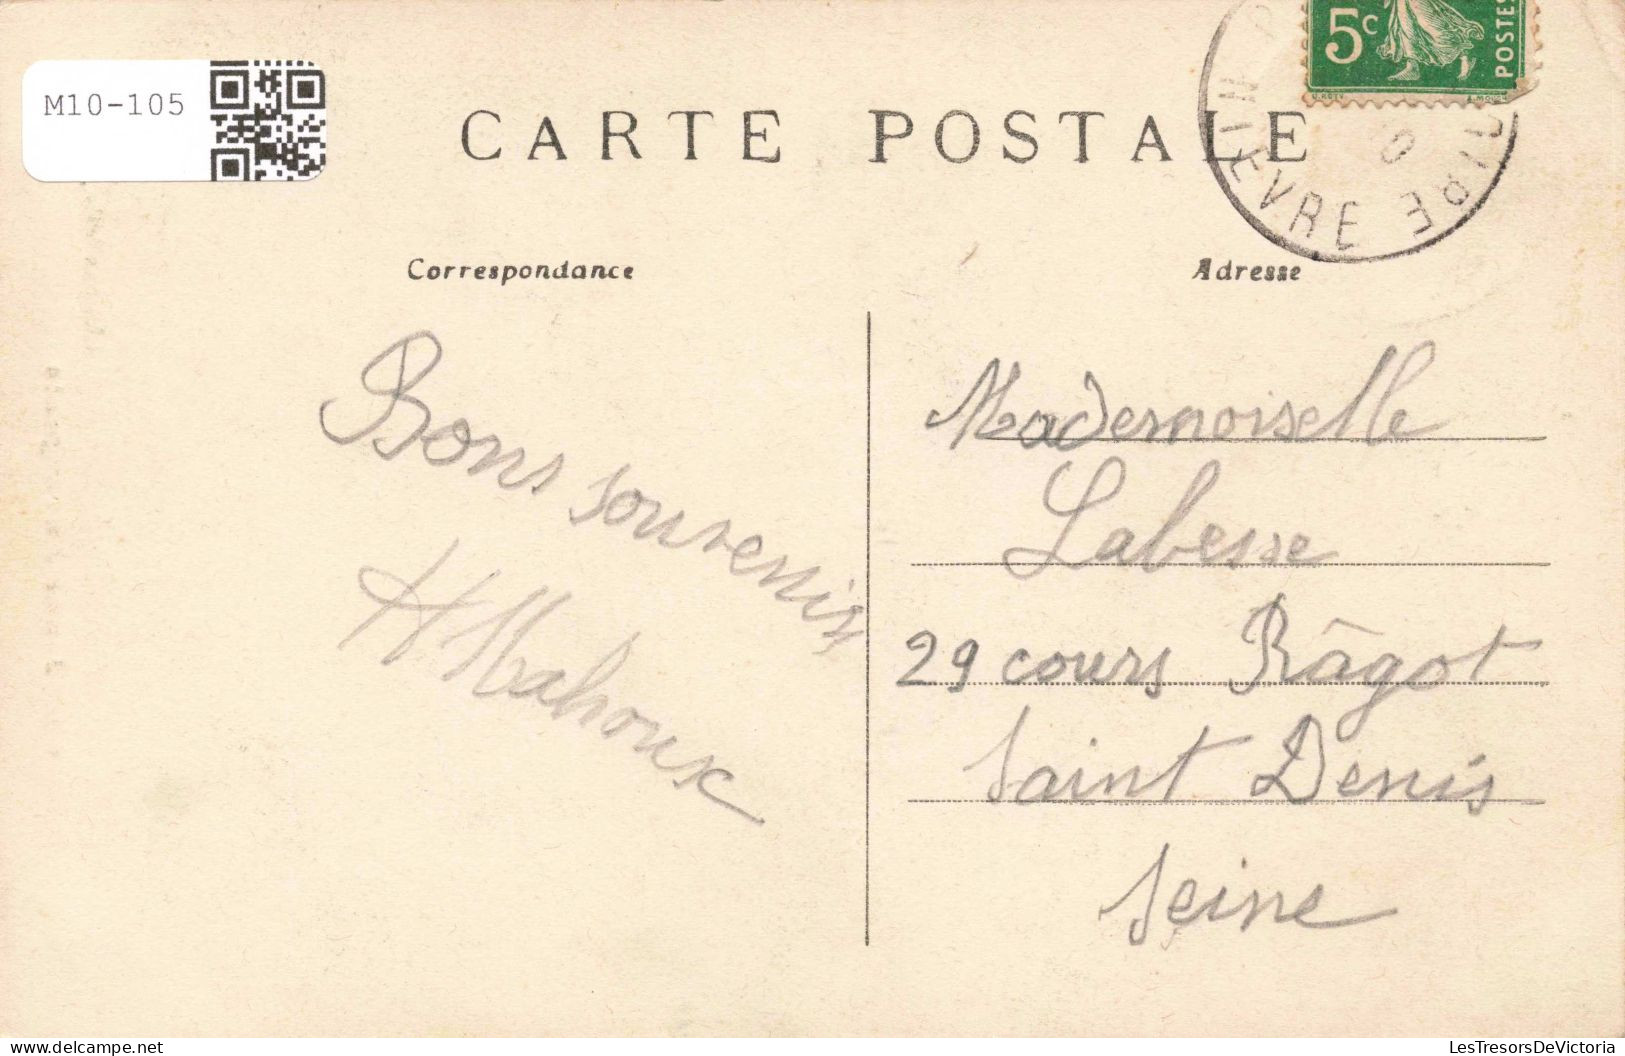 M10-105
CARTE POSTALE
5c
POSTES
NIÈVRE
Correspondance
Adresse
Bons souvenirs
H Mahoux
Mademoiselle
Labesse
29 cours Râgot
Saint Denis
Seine
LesTresorsDeVictoria